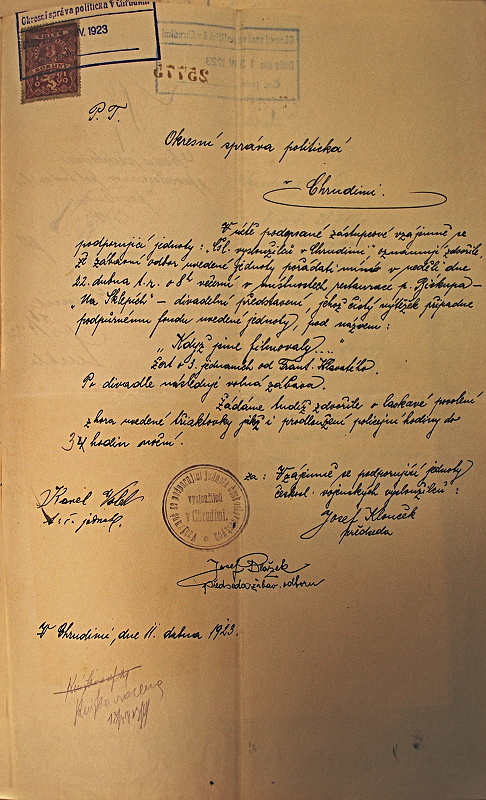 Okresní správa politická v Chrudimi
IV. 1923
KOLEK
3
KORUNY
25775
P. T.
Okresní správa politická
v Chrudimi.
V úctě podepsané zástupcové vzájemně se
podporující jednoty: „Čsl. vysloužilců v Chrudimi" oznamují zdvořile,
že zábavní odbor uvedené jednoty pořádati míní v neděli dne
22. dubna t. r. o 8 h večerní v místnostech restaurace p.
„Na Sklepích" – divadelní představení, jehož čistý výtěžek připadne
podpůrnému fondu uvedené jednoty, pod názvem:
„Když jsme filmovaly...."
Žert o 3. jednáních od Frant. Hlavatého.
Po divadle následuje volná zábava.
Žádáme tudíž zdvořile o laskavé povolení
shora uvedené jakož i prodloužení policejní hodiny do
3 hodin noční.
za: Vzájemně se podporující jednoty
českosl. vojenských vysloužilců:
Karel
t. č. jednat.
vysloužilců
v Chrudimi.
Josef Klouček
předseda
Josef Blažek
předseda zábav. odboru
V Chrudimi, dne 11. dubna 1923.